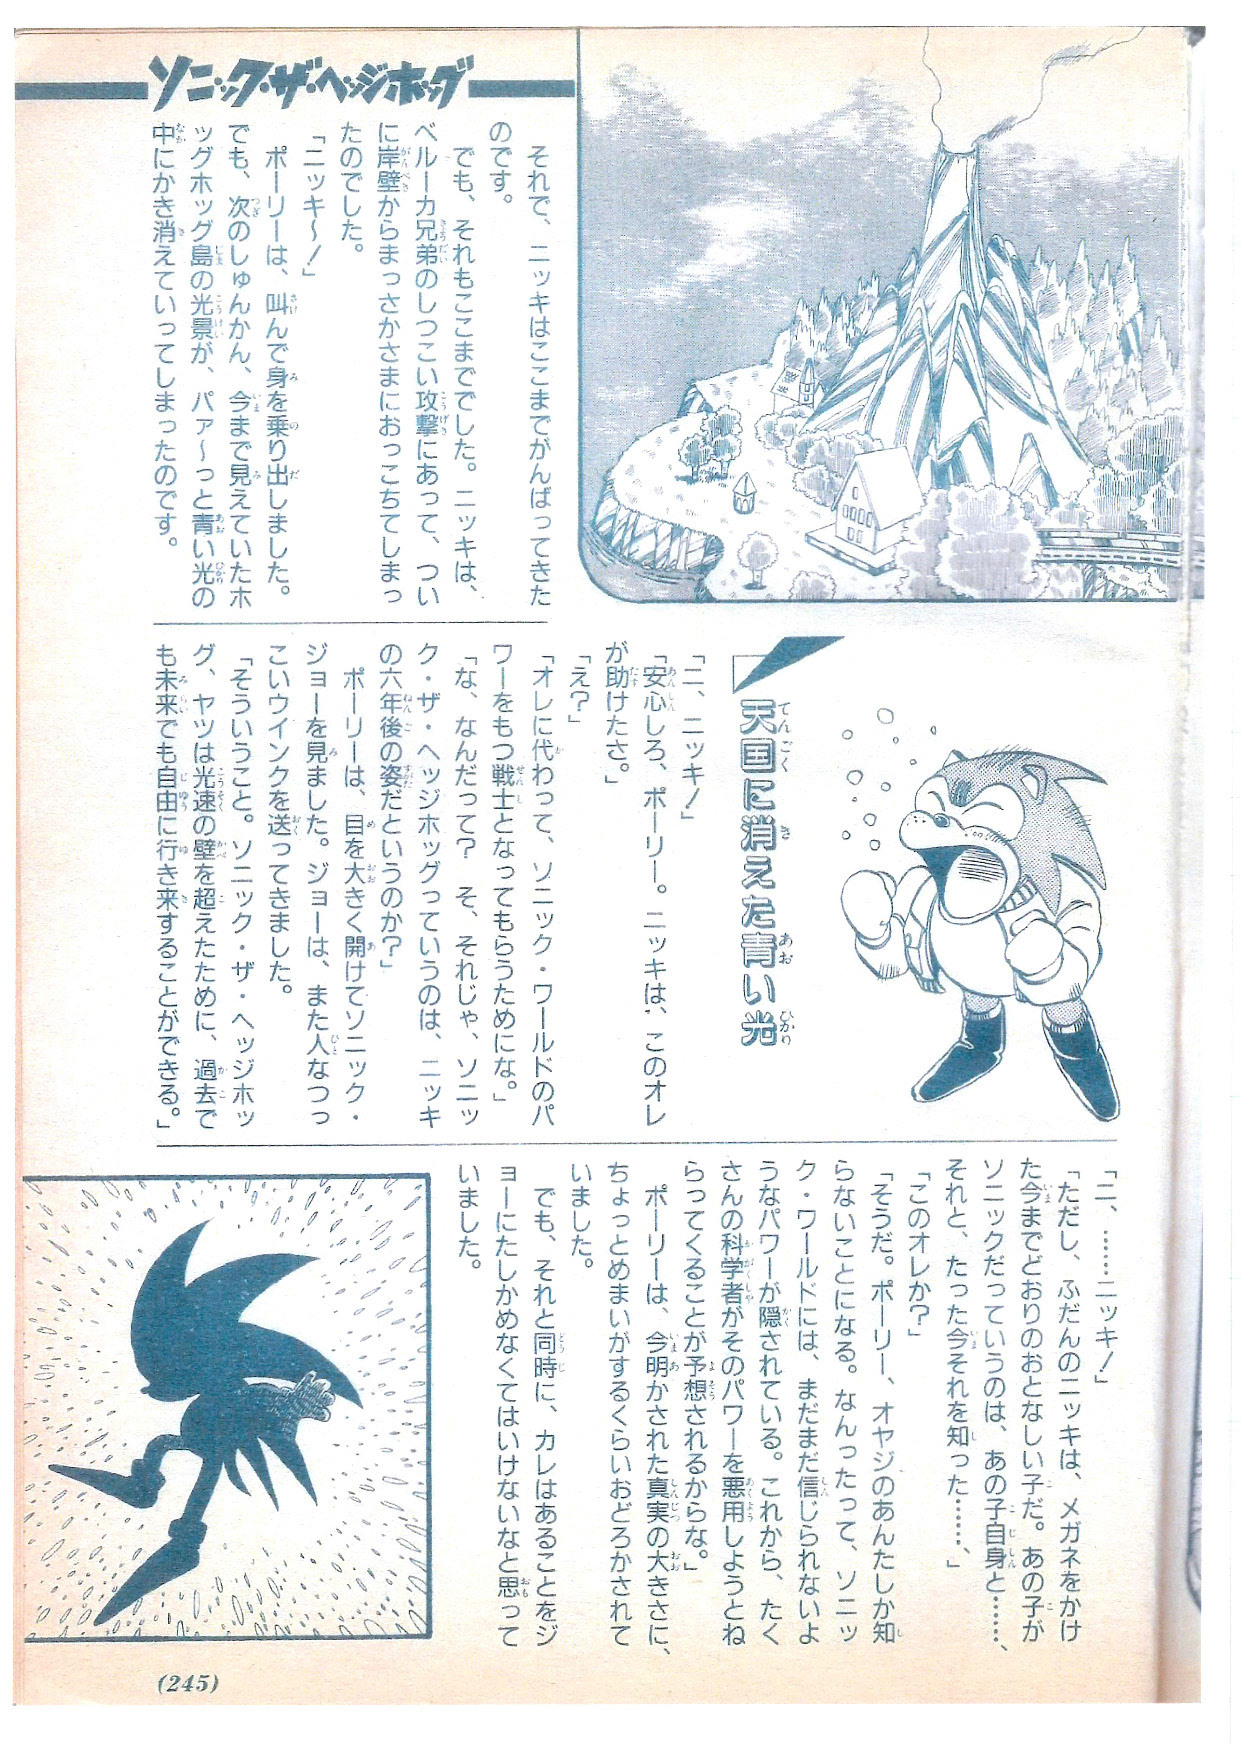 ソニック・ザ・ヘッジホッグ
それで、ニッキはここまでがんばってきた
のです。
でも、それもここまででした。ニッキは、
ベルーカ兄弟のしつこい攻撃にあって、つい
に岸壁からまっさかさまにおっこちてしまっ
たのでした。
「ニッキ〜！」
ポーリーは、叫んで身を乗り出しました。
でも、次のしゅんかん、今まで見えていたホ
ッグホッグ島の光景が、パァ〜っと青い光の
中にかき消えていってしまったのです。
天国に消えた青い光
「ニ、ニッキ！」
「安心しろ、ポーリー。ニッキは、このオレ
が助けたさ。」
「え？」
「オレに代わって、ソニック・ワールドのパ
ワーをもつ戦士となってもらうためにな。」
「な、なんだって？　そ、それじゃ、ソニッ
ク・ザ・ヘッジホッグっていうのは、ニッキ
の六年後の姿だというのか？」
ポーリーは、目を大きく開けてソニック・
ジョーを見ました。ジョーは、また人なつっ
こいウインクを送ってきました。
「そういうこと。ソニック・ザ・ヘッジホッ
グ、ヤツは光速の壁を超えたために、過去で
も未来でも自由に行き来することができる。」
「ニ、……ニッキ！」
「ただし、ふだんのニッキは、メガネをかけ
た今までどおりのおとなしい子だ。あの子が
ソニックだっていうのは、あの子自身と……、
それと、たった今それを知った……、」
「このオレか？」
「そうだ。ポーリー、オヤジのあんたしか知
らないことになる。なんったって、ソニッ
ク・ワールドには、まだまだ信じられないよ
うなパワーが隠されている。これから、たく
さんの科学者がそのパワーを悪用しようとね
らってくることが予想されるからな。」
ポーリーは、今明かされた真実の大きさに、
ちょっとめまいがするくらいおどろかされて
いました。
でも、それと同時に、カレはあることをジ
ョーにたしかめなくてはいけないなと思って
いました。
(245)